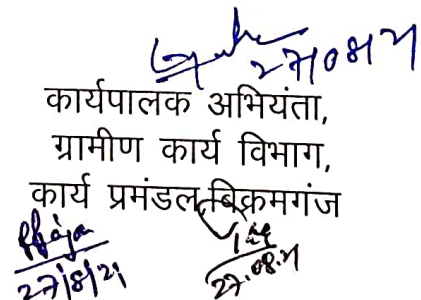 27/08/21
कार्यपालक अभियंता,
ग्रामीण कार्य विभाग,
कार्य प्रमंडल, बिक्रमगंज
27/8/21
27.08.21